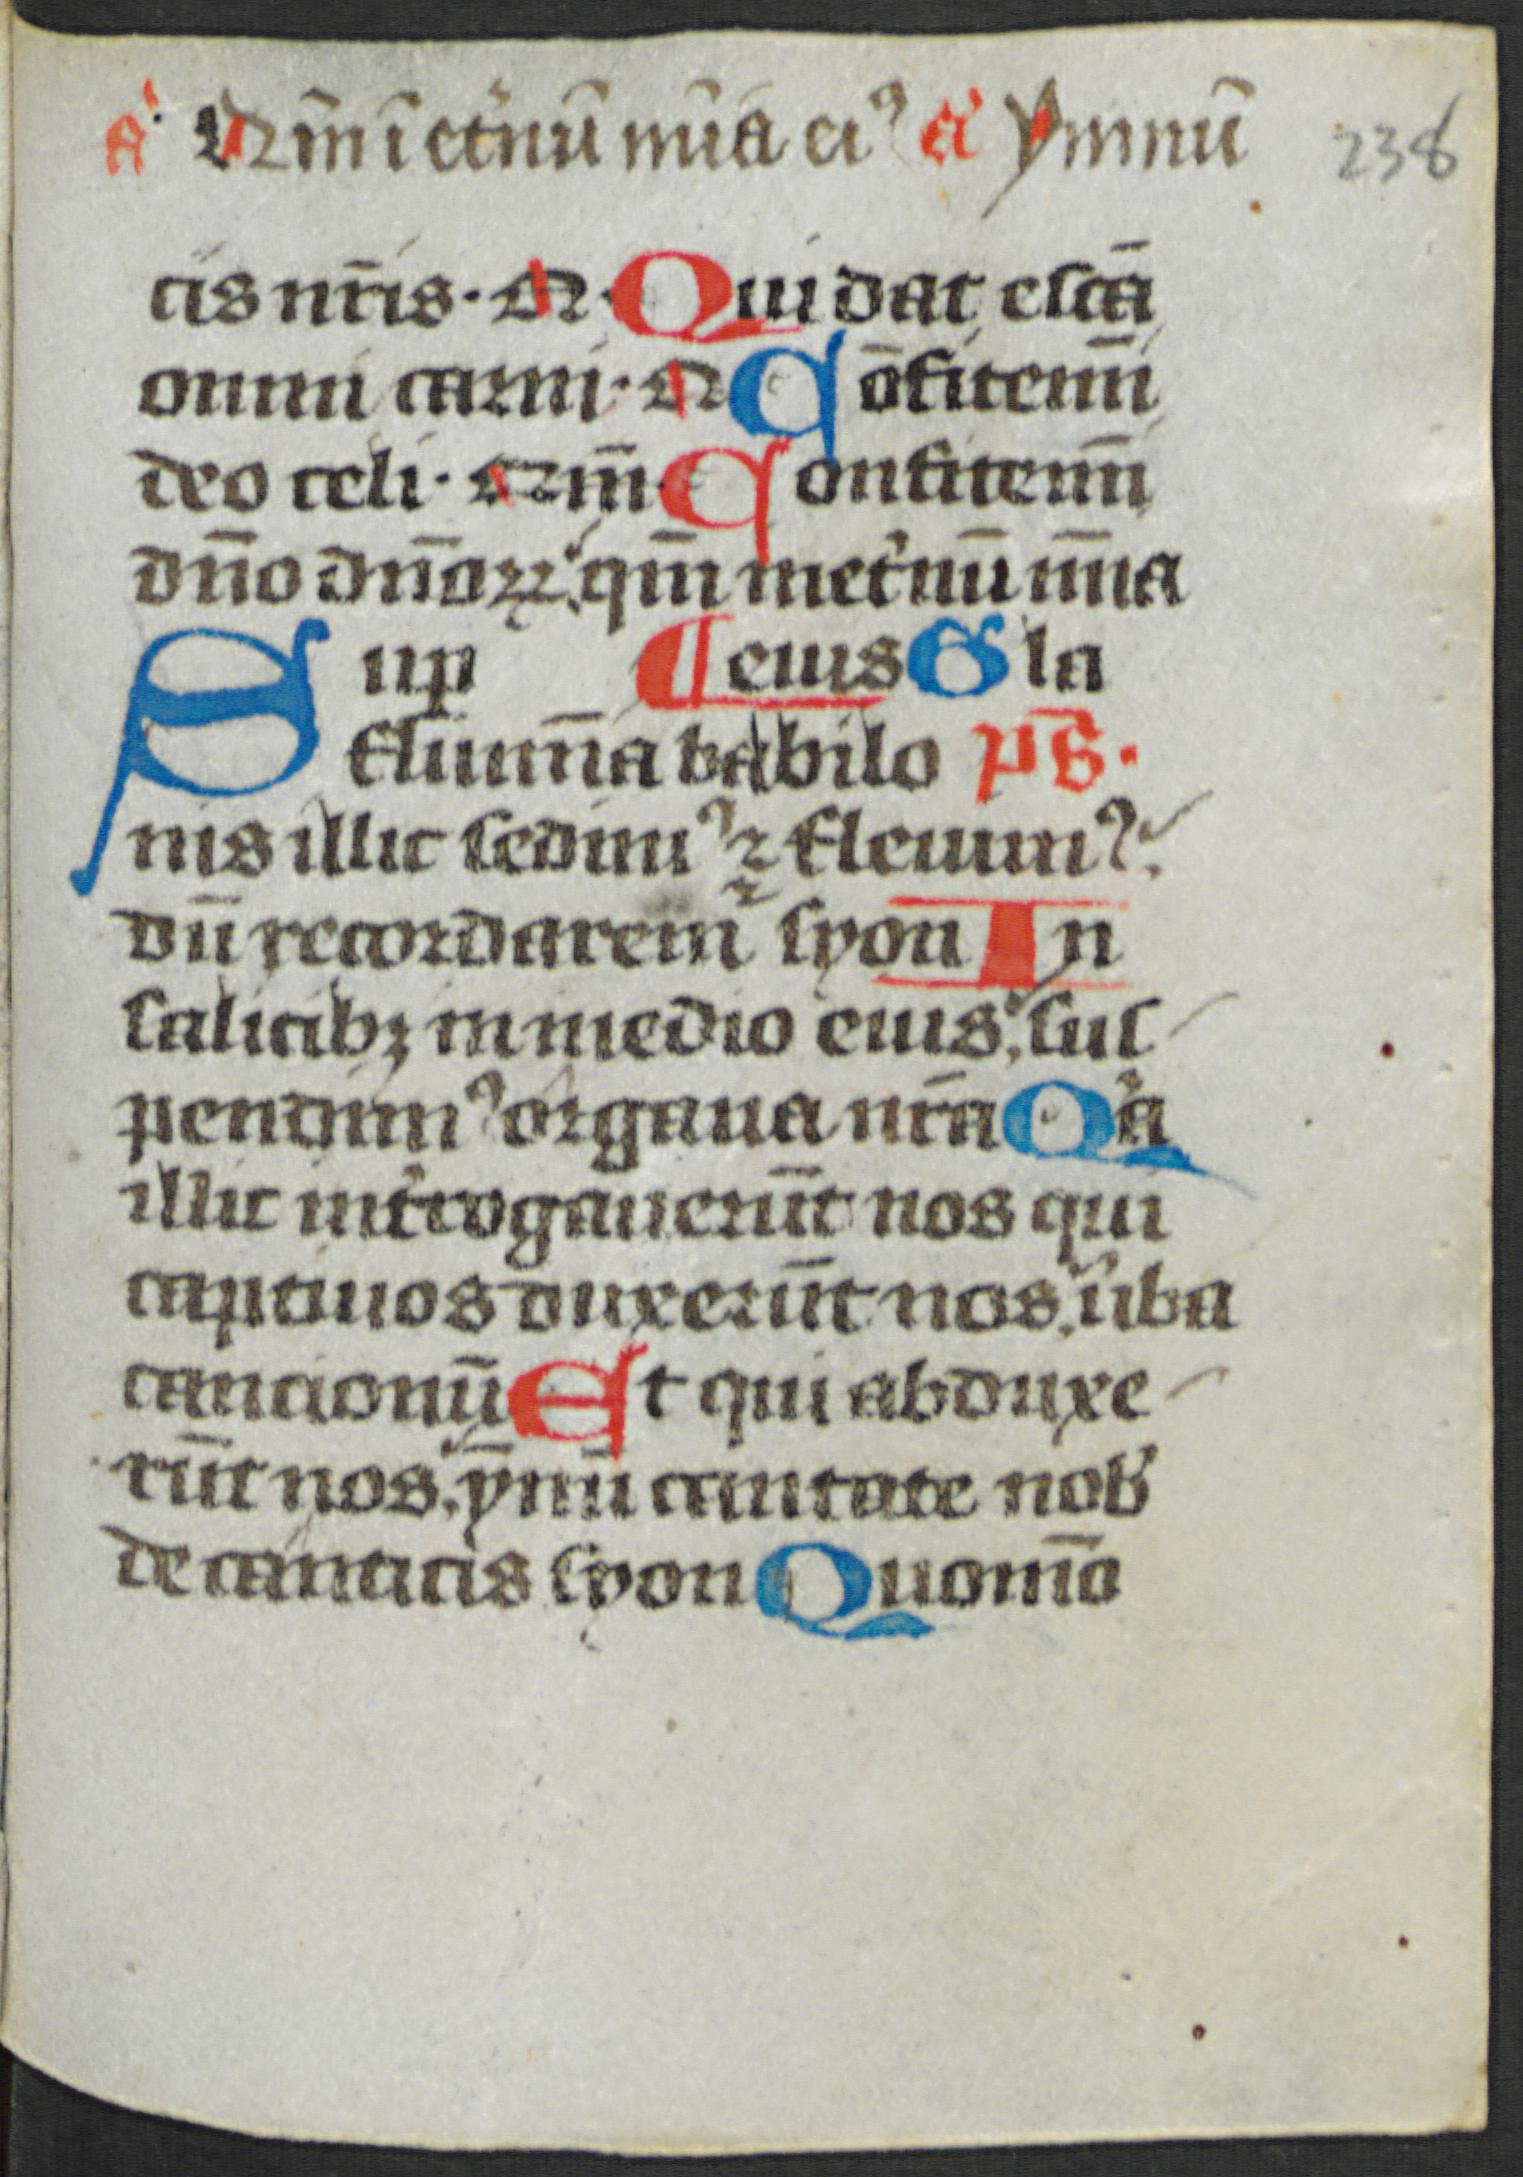 a̾ Qm̄ ī et̾nū mīa eiꝰ a̾ Ymnū 238
cis nr̄is · Q · Qui dat escā
omni carni · Q Cōfitemī
deo celi · Qm̄ Confitemī
dn̄o dn̄oꝝ qm̄ inet̾nū mīa
Suꝑ ¶ eius Gla
flumīa babilo ps̄.
nis illic sedimꝰ ⁊ fleuimꝰ
dū recordarem̄ syon In
salicibꝫ in medio eius sus
pendimꝰ organa nr̄a Qa
illic int̾rogauerūt nos qui
captiuos duxerūt nos u̾ba
cancionū Et qui abduxe
rūt nos ymnū cantate nob̾
de canticis syon Quomō